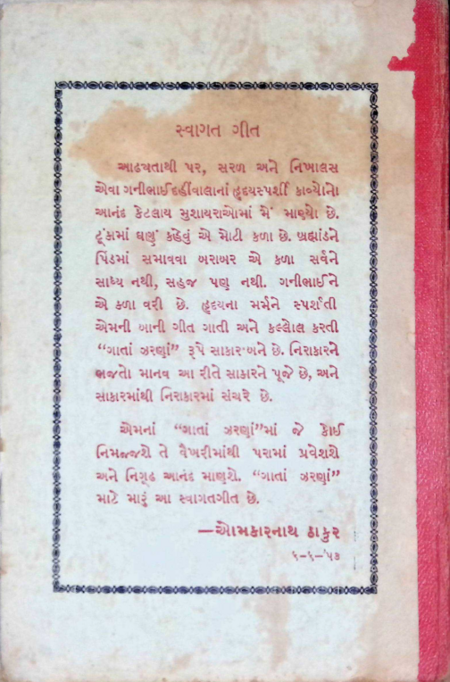 સ્વાગત ગીત
આઢ્યતાથી પર, સરળ અને નિખાલસ
એવા ગનીભાઈ દહીંવાલાનાં હૃદયસ્પર્શી કાવ્યોનો
આનંદ કેટલાય મુશાયરાઓમાં મેં માણ્યો છે.
ટૂંકામાં ઘણું કહેવું એ મોટી કળા છે. બ્રહ્માંડને
પિંડમાં સમાવવા બરાબર એ કળા સર્વને
સાધ્ય નથી, સહજ પણ નથી. ગનીભાઈને
એ કળા વરી છે. હૃદયના મર્મને સ્પર્શતી
એમની બાની ગીત ગાતી અને કલ્લોલ કરતી
“ગાતાં ઝરણાં” રૂપે સાકાર બને છે. નિરાકારને
ભજતો માનવ આ રીતે સાકારને પૂજે છે, અને
સાકારમાંથી નિરાકારમાં સંચરે છે.
એમનાં “ગાતાં ઝરણાં”માં જે કોઈ
નિમજ્જશે તે વૈખરીમાંથી પરામાં પ્રવેશશે
અને નિગૂઢ આનંદ માણશે. “ગાતાં ઝરણાં”
માટે મારું આ સ્વાગતગીત છે.
—ઓમકારનાથ ઠાકુર
૬-૬-'૫૩